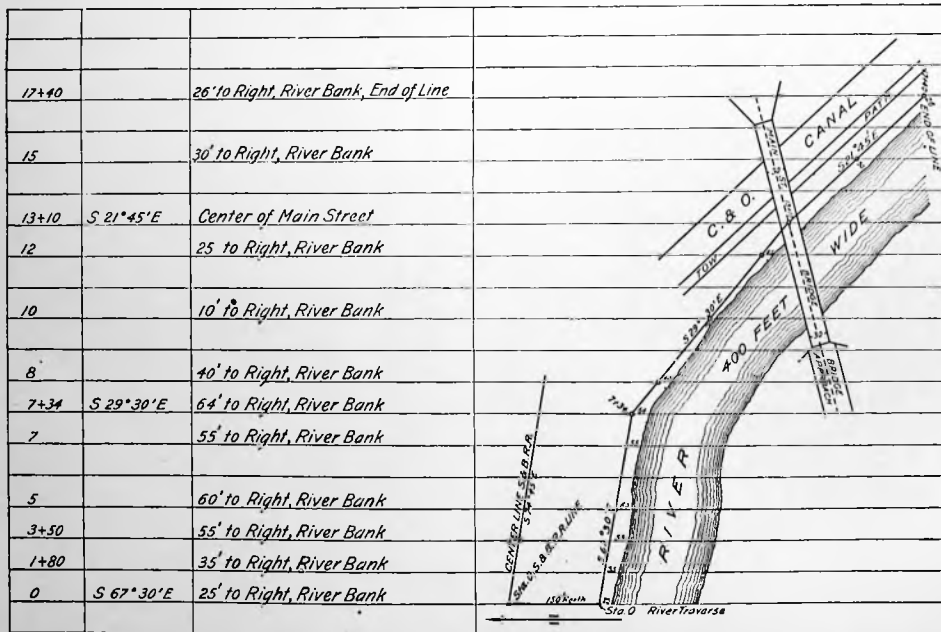 17+40 26' to Right, River Bank, End of Line
15 30' to Right, River Bank
13+10 S 21°45'E Center of Main Street
12 25 to Right, River Bank
10 10' to Right, River Bank
8 40' to Right, River Bank
7+34 S 29°30'E 64' to Right, River Bank
7 55' to Right, River Bank
5 60' to Right, River Bank
3+50 55' to Right, River Bank
1+80 35' to Right, River Bank
0 S 67°30'E 25' to Right, River Bank
C. & O. CANAL
TOW PATH
END OF LINE
MAIN ST.
BRIDGE
BRIDGE APPROACH
S 29° 30'E
400 FEET WIDE
RIVER
7+34
S 67°30'E
CENTER LINE S.& B.R.R.
Sta. O, S.& B.R.R. LINE
150 North
Sta. O River Traverse